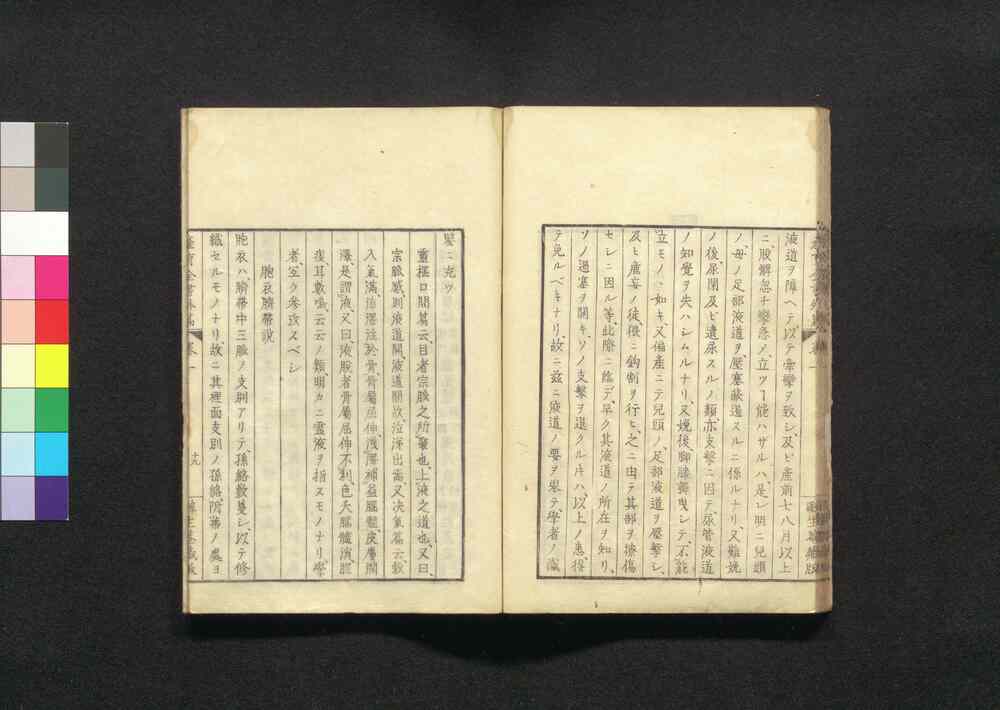 液道ヲ障ヘテ以テ牽攣ヲ致シ、及ビ産前七八月以上
ニ股髀忽チ攣急ノ立ツヿ能ハサルハ、是レ明ニ兒頭
ノ母ノ足部液道ヲ壓塞蔽遏スルニ係ルナリ、又難娩
ノ後、尿閉及ビ遺尿スルノ類、亦支擊ニ因テ、尿管液道
ノ知覺ヲ失ハシムルナリ、又娩後、脚膝攣曳シテ、不能
立モノヽ如キ、又偏産ニテ兒頭ノ足部液道ヲ壓擊シ、
及ヒ庸妄ノ徒猥ニ鈎割ヲ行ヒ、之ニ由テ其部ヲ擦傷
セシニ因ル等、此際ニ臨デ、早ク其液道ノ所在ヲ知リ、
ソノ遏塞ヲ開キ、ソノ支擊ヲ退クル片ハ、以上ノ患、得
テ免ルベキナリ、故ニ玆ニ液道ノ要ヲ畧テ、學者ノ
鑒ニ充ツ
靈樞口問篇云、目者宗脈之所聚也、上液之道也、又曰、
宗脈感則液道開、液道開故泣涕出焉、又决氣篇云、穀
入氣滿、淖澤注於骨、骨屬屈伸、洩澤補益腦髓、皮膚潤
澤、是謂液、又曰、液脫者骨屬屈伸不利、色夭、腦髓消、脛
痠、耳數鳴、云云ノ類、明カニ靈液ヲ指スモノナリ、學
者、宜ク參攷スベシ
胞衣臍帶說
胞衣ハ、臍帶中三脈ノ支別アリテ、孫絡數蔓シ、以テ修
織セルモノナリ、故ニ其裡面支別ノ孫絡
卷一
十九